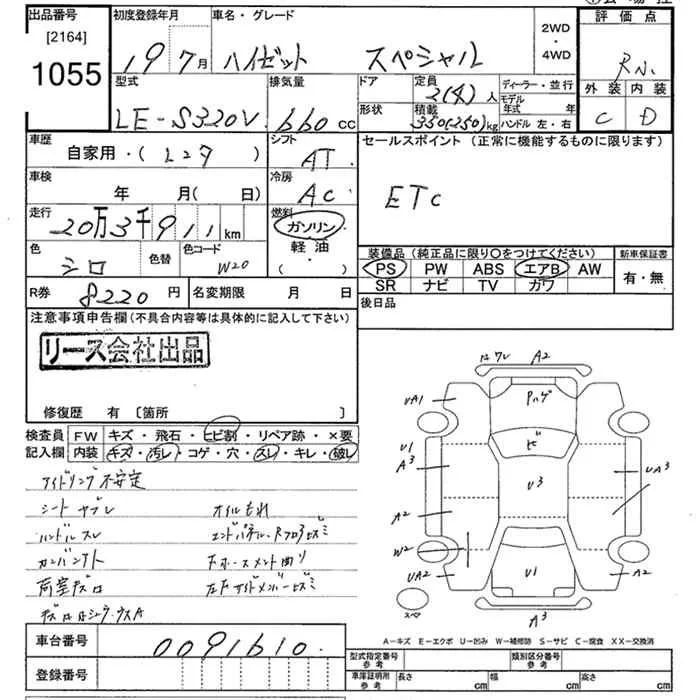 出品番号
[2164]
1055
初度登録年月
19年7月
車名・グレード
ハイゼット スペシャル
2WD
4WD
評価点
R
外装 内装
C D
型式
LE-S320V
排気量
660 cc
ドア
形状
定員
2(4)人
積載
350(250)kg
ディーラー・並行
モデル年式 年
ハンドル 左・右
車歴
自家用・( レンタ )
シフト
AT
セールスポイント (正常に機能するものに限ります)
ETC
車検
年 月( 日)
冷房
AC
走行
20万3千911km
燃料
ガソリン
軽油
( )
色
シロ
色替
色コード
W20
装備品 (純正品に限り○をつけてください)
PS PW ABS エアB AW
SR ナビ TV カワ
新車保証書
有・無
R券 8220円
名変期限 月 日
後日品
注意事項申告欄(不具合内容等は具体的に記入して下さい)
リース会社出品
修復歴 有 [箇所 ]
検査員記入欄
FW キズ・飛石・ヒビ割・リペア跡・×要
内装 キズ・汚レ・コゲ・穴・スレ・キレ・破レ
アイドリング不安定
シートヤブレ オイルもれ
ハンドルスレ
荷室キズ凹
車台番号 0091610
登録番号
A2
UA1
U1
A3
A2
W2
UA2
ヒ
U3
U1
UA3
A2
A3
スペア
A−キズ E−エクボ U−凹み W−補修跡 S−サビ C−腐食 XX−交換済
型式指定番号 参考
類別区分番号 参考
車庫証明所 参考
長さ cm 幅 cm 高さ cm